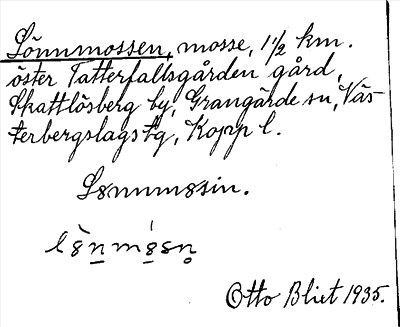 Lönnmossen, mosse, 1 1/2 km.
öster Tatterfallsgården gård,
Skattlösberg by, Grangärde sn, Väs-
terbergslags tg, Kopp l.
Lønnmøsin.
lø̀n̲mø̲̍sn̥
Otto Blixt 1935.